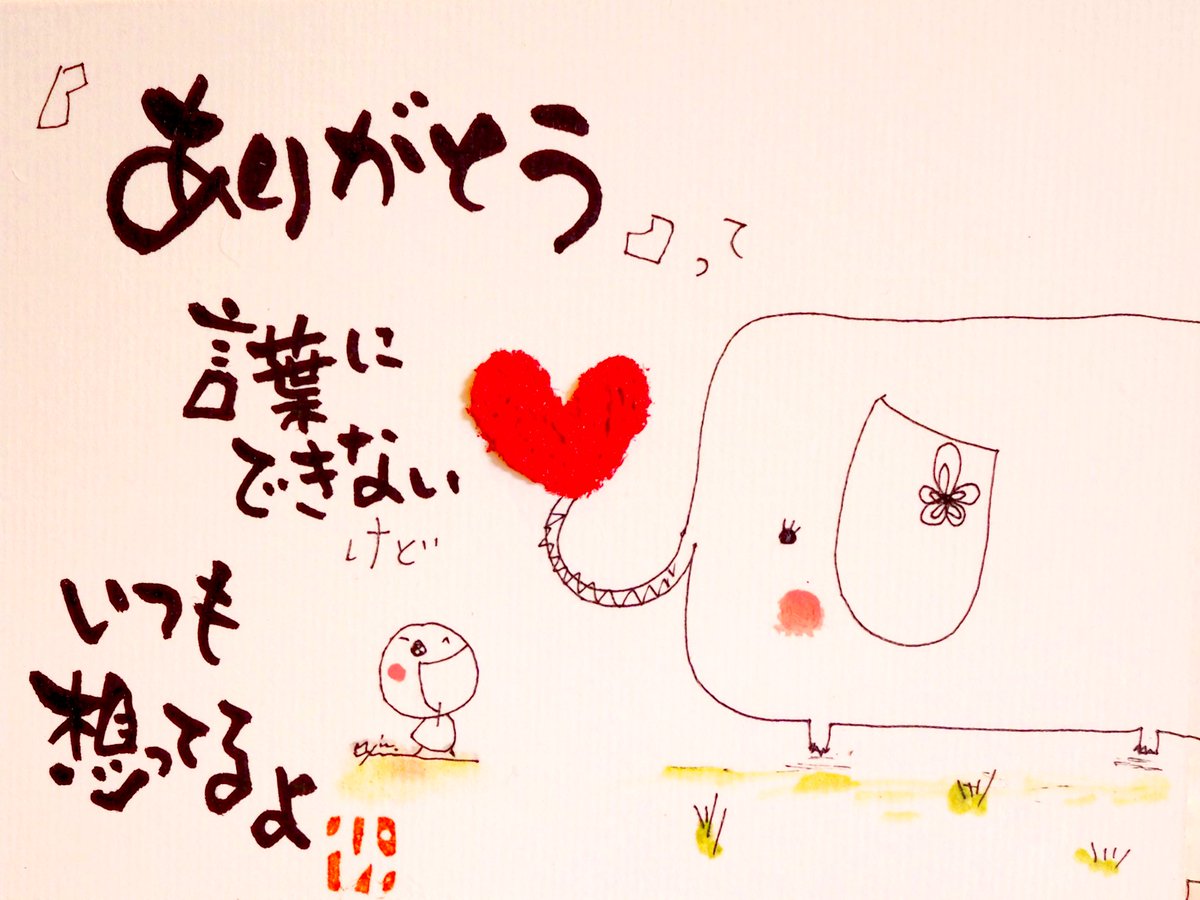 『ありがとう』って
言葉に
できない
けど
いつも
想ってるよ